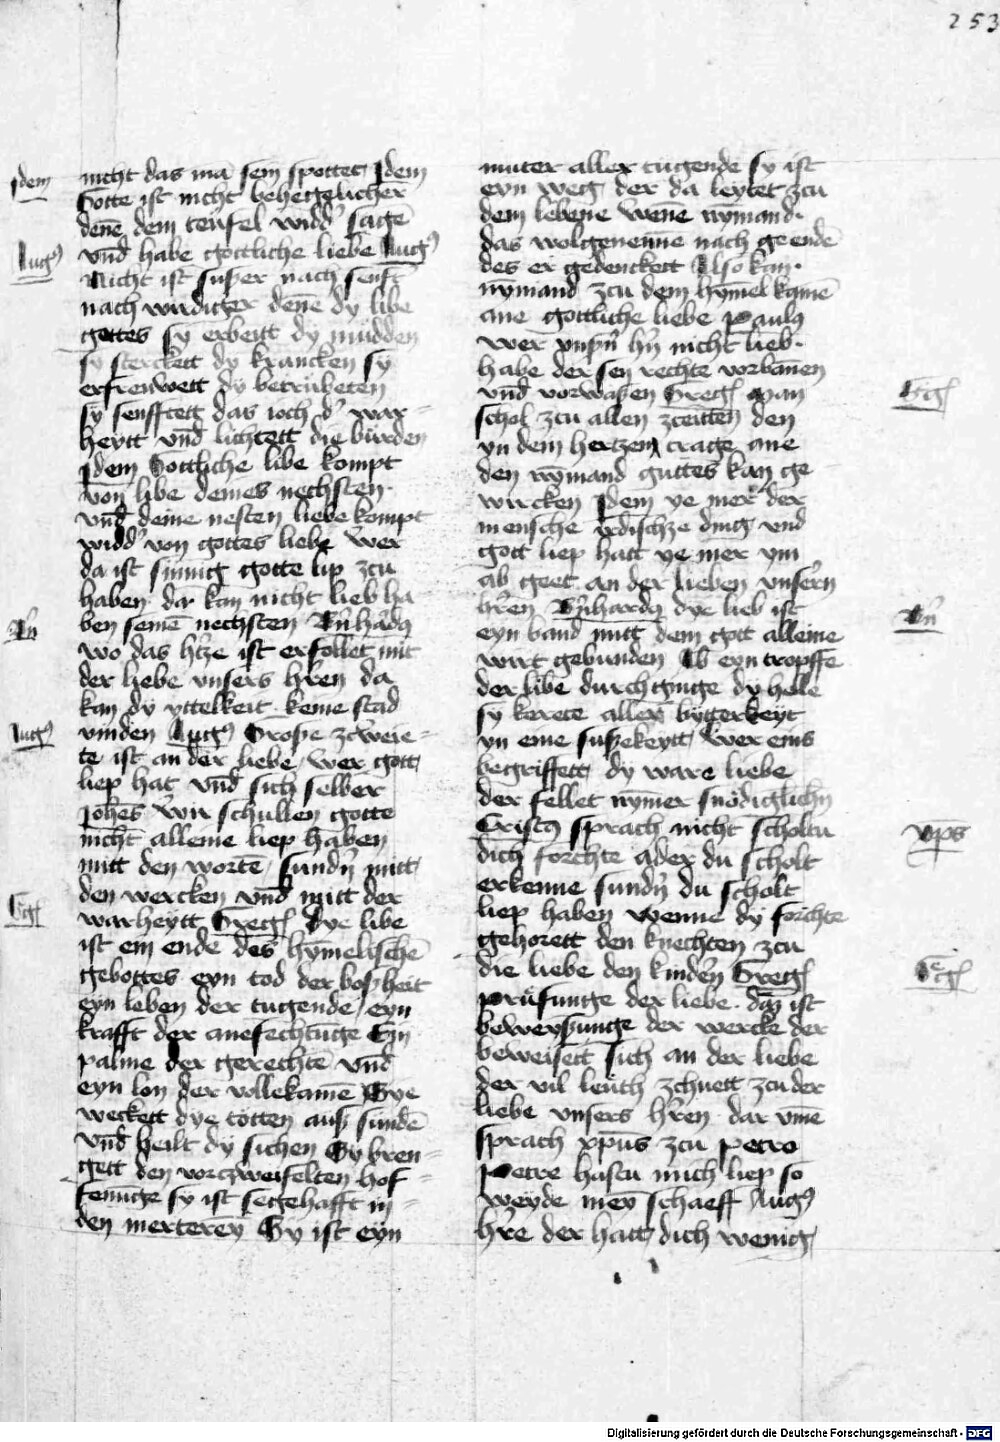 253
nicht das mā sein spottet Jdem
Jdem
Gotte ist nicht behegelicher
denē dem teufel widd' sagē
vnd habe gottliche liebe Aug9
Aug9
Nicht ist susser nach senfft
nach wirdiger denē dy libe
gottes sy erbeitt dy müdden
sy sterckett dy krancken sy
erfreuwett dy betrubeten
sy senfftett das ioch d' war=
heytt vnd lichtett die bürden
Jdem Gottliche libe kompt
von libe deines nechsten
vnd deine nesten liebe kompt
widd' von gottes liebe wer
da ist sinnig gotte lip zcu
haben da kan nicht lieb ha=
ben seinē nechsten B'nhard9
B'n
wo das h'tze ist erfollet mit
der liebe vnsers h'ren da
kan dy yttelkeit keine stad
vinden Aug9 Grose zcweie=
Aug9
te ist an der liebe wer gott
liep hat vnd sich selber
Joh'es Wir schullen gotte
nicht alleine liep haben
mitt den wortē sund'n mitt
den wercken vnd mitt der
warheytt Greg' dye libe
G'g'
ist ein ende des hymelischē
gebottes eyn tod der bossheit
eyn leben der tugende eyn
krafft der anefechtūge Ein
palme der gerechtē vnd
eyn lon der vollekamē Sye
weckett dye totten auss sundē
vnd heilt dy sichen Sy bren=
gett den vorczweifelten hof=
fenūge sy ist segehafft in
den merterey Sy ist eyn
muter aller tugende sy ist
eyn weg der da leytet zcu
dem lebene Wenē nymand
das wolgenenne nach geendē
des er gedenckett Also kan
nymand zcu dem hymel kamē
ane gottliche liebe Paul9
wer xp'm h'n nicht lieb
habe der sey rechte vorbanen
vnd vorwassen Greg' Man
G'g'
schol zcu allen zceitten den
yn dem hertzen trage ane
den nymand guttes kan ge
wircken Jdem ye mer der
mensche yrdischze ding vnd
gott liep hatt ye mer ym
ab geet an der lieben vnsern
h'ren B'nhard9 dye lieb ist
B'n
eyn band mitt dem gott alleine
wirt gebunden Ab eyn tropffe
der libe durchginge dy helle
sy kerete aller bytterkeyt
yn eine sussekeytt Wer eins
begriffett dy ware liebe
der fellet nymer snödiglichn
Crist9 sprach nicht scholtu
xps
dich forchte ader du scholt
erkenne sund'n du scholt
liep haben Wenne dy forchte
gehorett den knechten zcu
die liebe den kindern Greg'
G'g'
Prüfunge der liebe daz ist
beweysunge der wercke der
beweisett sich an der liebe
der vil leuth zchuett zcu der
liebe vnsers h'ren dar vmē
sprach xpūs zcu Petro
Petre hastu mich liep so
weyde mey schaeff Aug9
h're der hatt dich wenig
Digitalisierung gefördert durch die Deutsche Forschungsgemeinschaft - DFG